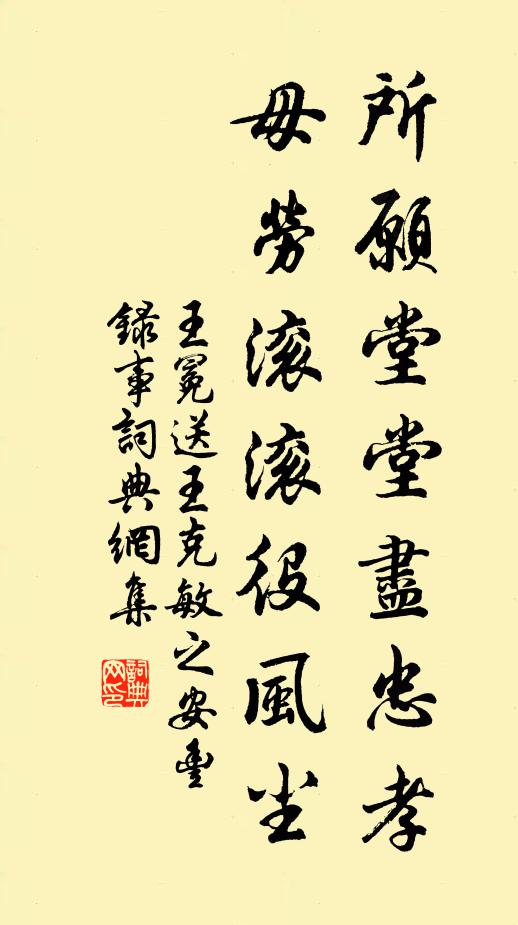 所願堂堂盡忠孝
毋勞滚滚役風尘
王冕送王克敏之安豊
録事詞典網集
詞典网印